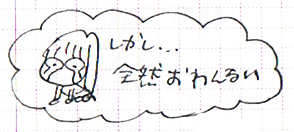 しかし...
全然おわんるい